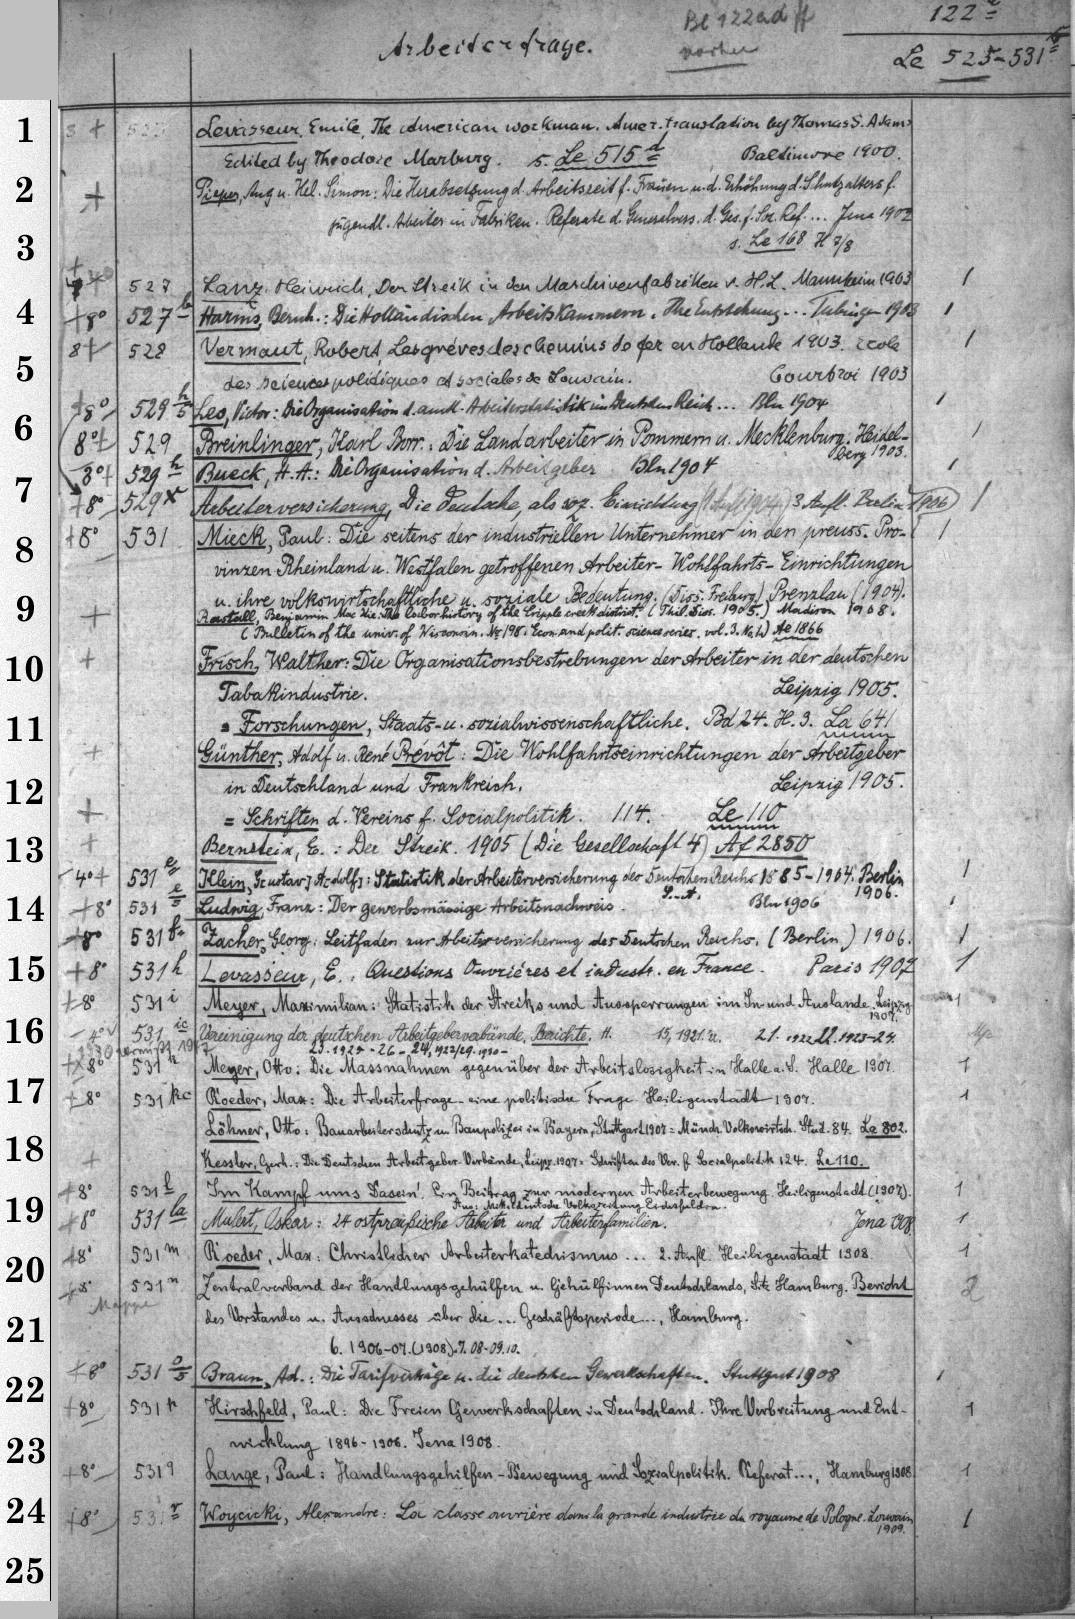 Bl 122ad ff
vorher
122a
Arbeiterfrage.
Le 525-531
1
3 +
Levasseur, Emile, The American workman. Amer. translation by Thomas S. Adams
Edited by Theodore Marburg. s. Le 515d Baltimore 1900.
2
+ Pieper, Aug u. Hel. Simon: Die Herabsetzung d. Arbeitszeit f. Frauen u. d. Erhöhung d. Schutzalters f.
jugendl. Arbeiter in Fabriken. Referate d. Generalvers. d. Ges. f. Soz. Ref. ... Jena 1902
3
s. Le 168 H 7/8
527 Lanz, Heinrich, Der Streik in den Maschinenfabriken v. H. L. Mannheim 1903 1
4
+8° 527b Harms, Bernh.: Die Holländischen Arbeitskammern. Ihre Entstehung... Tübingen 1903 1
8+ 528 Vermaut, Robert, Les gréves des chemins de fer en Hollande 1902. 1903. Ecole 1
5
des sciences politiques et sociales de Louvain. Courtroi 1903
+8° 529 h/5 Leo, Victor: Die Organisation d. amtl. Arbeiterstatistik im Deutschen Reich... Bln 1904 1
6
8°+ 529 Breinlinger, Karl Borr.: Die Landarbeiter in Pommern u. Mecklenburg. Heidel- 1
berg 1903.
8°+ 529h Bueck, H. A.: Die Organisation d. Arbeitgeber Bln 1904 1
7
+8° 529x Arbeiterversicherung, Die Deutsche, als soz. Einrichtung (1. Aufl. 1904) 3 Aufl. Berlin 1906 1
8
+8° 531 Mieck, Paul: Die seitens der industriellen Unternehmer in den preuss. Pro- 1
vinzen Rheinland u. Westfalen getroffenen Arbeiter-Wohlfahrts-Einrichtungen
9
u. ihre volkswirtschaftliche u. soziale Bedeutung. (Diss. Freiburg) Prenzlau (1904).
+ Rastall, Benjamin Mac Kie: The labor history of the Cripple creek district. (Phil. Diss. 1905.) Madison 1908.
(Bulletin of the univ. of Wisconsin. No 198. Econ. and polit. science series. vol. 3. No 1.) Ae 1866
10
+ Frisch, Walther: Die Organisationsbestrebungen der Arbeiter in der deutschen
Tabakindustrie. Leipzig 1905.
11
= Forschungen, Staats- u. sozialwissenschaftliche. Bd 24. H. 3. La 641
+ Günther, Adolf u. René Prévôt: Die Wohlfahrtseinrichtungen der Arbeitgeber
12
in Deutschland und Frankreich. Leipzig 1905.
+ = Schriften d. Vereins f. Socialpolitik. 114. Le 110
13
+ Bernstein, E.: Der Streik. 1905 (Die Gesellschaft 4) Af 2850
4°+ 531e Klein, G[ustav] A[dolf]: Statistik der Arbeiterversicherung des Deutschen Reichs 1885-1904. Berlin 1
1906.
14
+8° 531 e/5 Ludwig, Franz: Der gewerbsmässige Arbeitsnachweis. Bln 1906 1
+8° 531f Zacher, Georg: Leitfaden zur Arbeiterversicherung des Deutschen Reichs. (Berlin.) 1906. 1
15
+8° 531h Levasseur, E. Questions Ouvriéres et industr. en France. Paris 1907 1
+8° 531i Meyer, Maximilian: Statistik der Streiks und Aussperrungen im In- und Auslande. Leipzig 1
1907.
16
4° 531ic Vereinigung der deutschen Arbeitgeberverbände, Berichte. H. 15, 1921. u. 21. 1922. 22. 1923-24.
23. 1925-26 - 24, 1927/29. 1930-
+8° 531k Meyer, Otto: Die Massnahmen gegenüber der Arbeitslosigkeit in Halle a. S. Halle 1907. 1
17
+8° 531kc Roeder, Max: Die Arbeiterfrage eine politische Frage Heiligenstadt 1907. 1
Löhner, Otto: Bauarbeiterschutz u. Baupolizei in Bayern, Stuttgart 1907 = Münch. Volkswirtsch. Stud. 84. La 802.
18
+ Kessler, Gerh.: Die Deutschen Arbeitgeber-Verbände, Leipz. 1907 = Schriften des Ver. f. Socialpolitik 124. Le 110.
+8° 531l Im Kampf ums Dasein! Ein Beitrag zur modernen Arbeiterbewegung. Heiligenstadt (1907). 1
19
Aus: Mitteldeutsche Volkszeitung Eichsfeldia.
+8° 531la Mulert, Oskar: 24 ostpreußische Arbeiter und Arbeiterfamilien. Jena 1908. 1
+8° 531m Roeder, Max: Christlicher Arbeiterkatechismus... 2. Aufl. Heiligenstadt 1908. 1
20
+8° 531n Zentralverband der Handlungsgehülfen u. Gehülfinnen Deutschlands, Sitz Hamburg. Bericht 2
Mappe
des Vorstandes u. Ausschusses über die... Geschäftsperiode..., Hamburg.
21
6. 1906-07. (1908). 7. 08-09. 10.
+8° 531 o/5 Braun, Ad.: Die Tarifverträge u. die deutschen Gewerkschaften. Stuttgart 1908 1
22
+8° 531p Hirschfeld, Paul: Die Freien Gewerkschaften in Deutschland. Ihre Verbreitung und Ent- 1
23
wicklung 1896-1906. Jena 1908.
+8° 531q Lange, Paul: Handlungsgehilfen-Bewegung und Sozialpolitik. Referat..., Hamburg 1908 1
24
+8° 531r Woycicki, Alexandre: La classe ouvrière dans la grande industrie du royaume de Pologne. Louvain 1
1909.
25